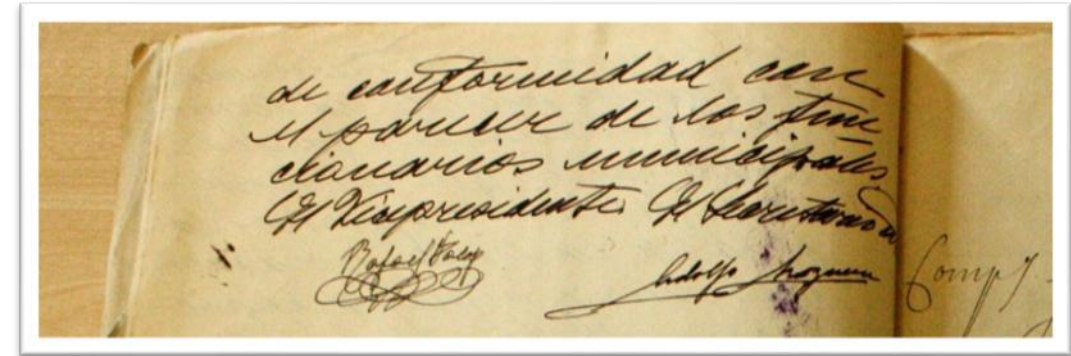 de conformidad con
el parecer de los fun
cionarios municipales
El Vicepresidente El Secretario
Rafael
Adolfo
Comp